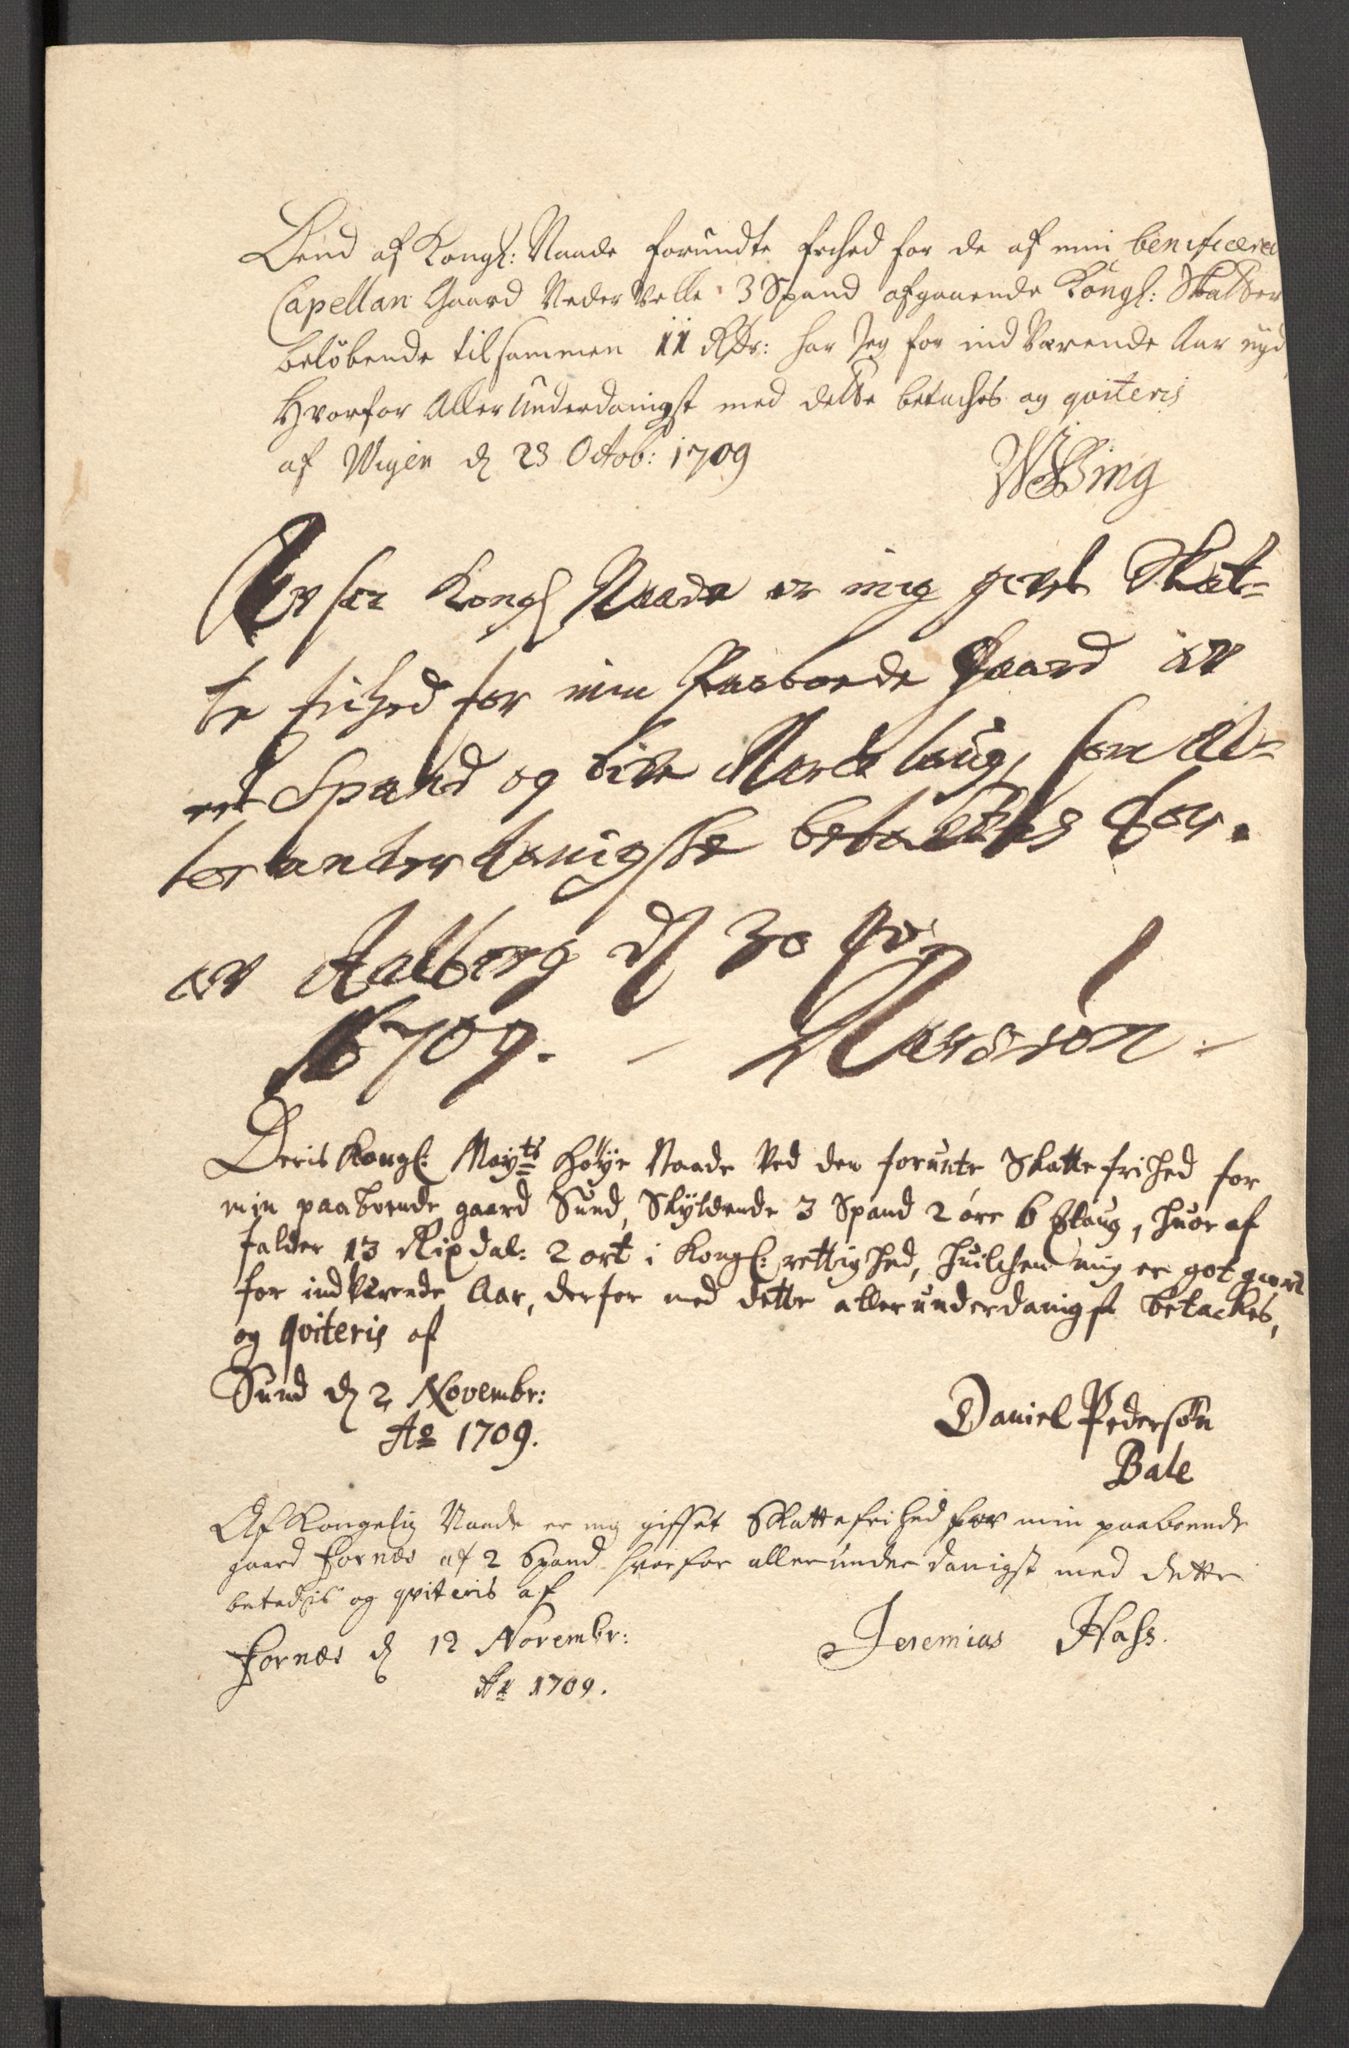 Dend af Kongl: Naade forundte frihed for de af min benificered
Capellan Gaard Neder Velle 3 Spand afgaaende Kongl: Skatter
beløbende tilsammen 11 Rdr: har Jeg for indværende Aar nyd
Hvorfor Allerunderdanigst med dette betackes og qviteris
af Wigen d 23 Octob: 1709
Bing
Kongl Naade er mig givet Skat-
te frihed for min Paaboende Gaard av
Spand og Marcklaug, som al-
lerunderdanigste betackes for.
av Aalberg d 30
1709.
Deris Kongl: Mayts høÿe Naade ved den forunte Skatte frihed for
min paaboende gaard Sund, Skÿldende 3 Spand 2 øre 6 Mlaug, huor af
falder 13 Rixdal: 2 ort i Kongl: rettighed, huilchen mig er got giort
for indværende Aar, derfor med dette allerunderdanigst betackes,
og qviteris af
Sund d 2 Novembr:
Ao 1709.
Daniel Pedersøn
Bale
Af Kongelig Naade er mig giffvet Skattefrihed for min paaboende
gaard Fornæs af 2 Spand hvorfor allerunderdanigst med dette
betachis og qviteris af
Fornæs d 12 Novembr:
Ao 1709.
Jeremias Hass.